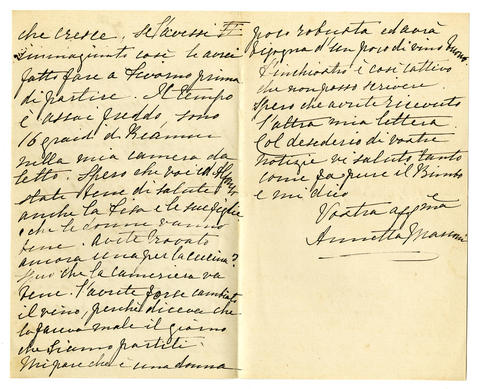 che cresce. Se l'avessi
immaginato così le avrei
fatto fare a Livorno prima
di partire. Il tempo
è assai freddo, sono
16 gradi di Reamur
nella mia camera da
letto. Spero che voi ed
state bene di salute
anche la Lisa e le sue figlie
e che le donne vanno
bene. Avete trovato
ancora una per la cucina?
che la cameriera va
bene. L'avete forse cambiato
il vino, perchè diceva che
le faceva male il giorno
che siamo partiti
Mi pare che è una donna
poco robusta ed avrà
bisogno d'un poco di vino buono.
L'inchiostro è così cattivo
che non posso scrivere.
Spero che avrete ricevuto
l'altra mia lettera
Col desiderio di vostre
notizie vi saluto tanto
come da pure il Bimbo
e mi dico
Vostra affma
Annetta